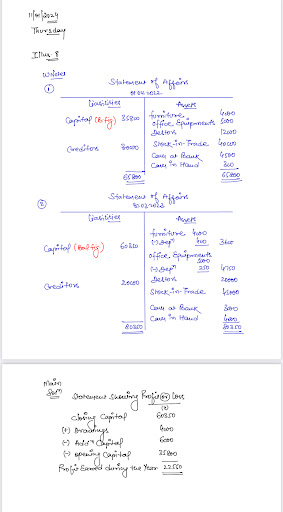 11/01/2024
Thursday
Illus-8
W.Notes
①
Statement of Affairs
01.04.2022
Liabilities Assets
Capital (B.fig) 35800 furniture 4000
office Equipments 5000
Debtors 12000
Creditors 30000 Stock-in-Trade 40000
Cash at Bank 4500
Cash in Hand 300
65800 65800
②
Statement of Affairs
31.03.2023
Liabilities Assets
furniture 4000
(-) Depn 400 3600
Capital (Bal fig) 60350 office Equipments
5000
(-) Depn 250 4750
Creditors 20000 Debtors 20000
Stock-in-Trade 45000
Cash at Bank 3000
Cash in Hand 4000
80350 80350
Main
Soln
Statement Showing Profit (or) Loss
Closing Capital 60350
(+) Drawings 4000
(-) Addn Capital 6000
(-) Opening Capital 35800
Profit Earned during the Year 22550